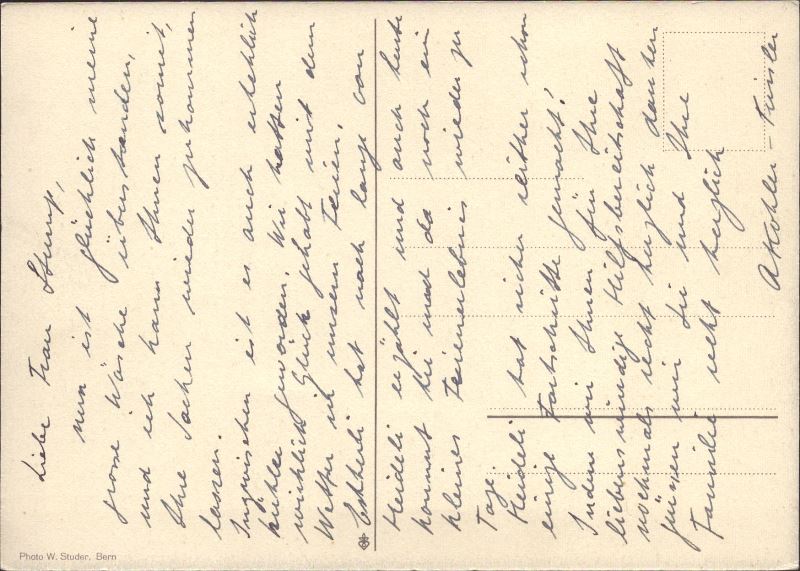 Liebe Frau Stump,
nun ist glücklich meine
grosse Wäsche überstanden,
und ich kann Ihnen somit,
Ihre Sachen wieder zukommen
lassen.
Inzwischen ist es auch erheblich
kühler geworden. Wir hatten
wirklich Glück gehabt mit dem
Wetter in unsern Ferien.
hat noch lange von
Heideli erzählt und auch heute
kommt hie und da noch ein
kleines Ferienerlebnis wieder zu
Tage.
Heideli hat sicher seither schon
einige Fortschritte gemacht!
Indem wir Ihnen für Ihre
liebenswürdige Hilfsbereitschaft
nochmals recht herzlich danken
grüssen wir Sie und Ihre
Familie recht herzlich
A Kohler-
Photo W. Studer, Bern